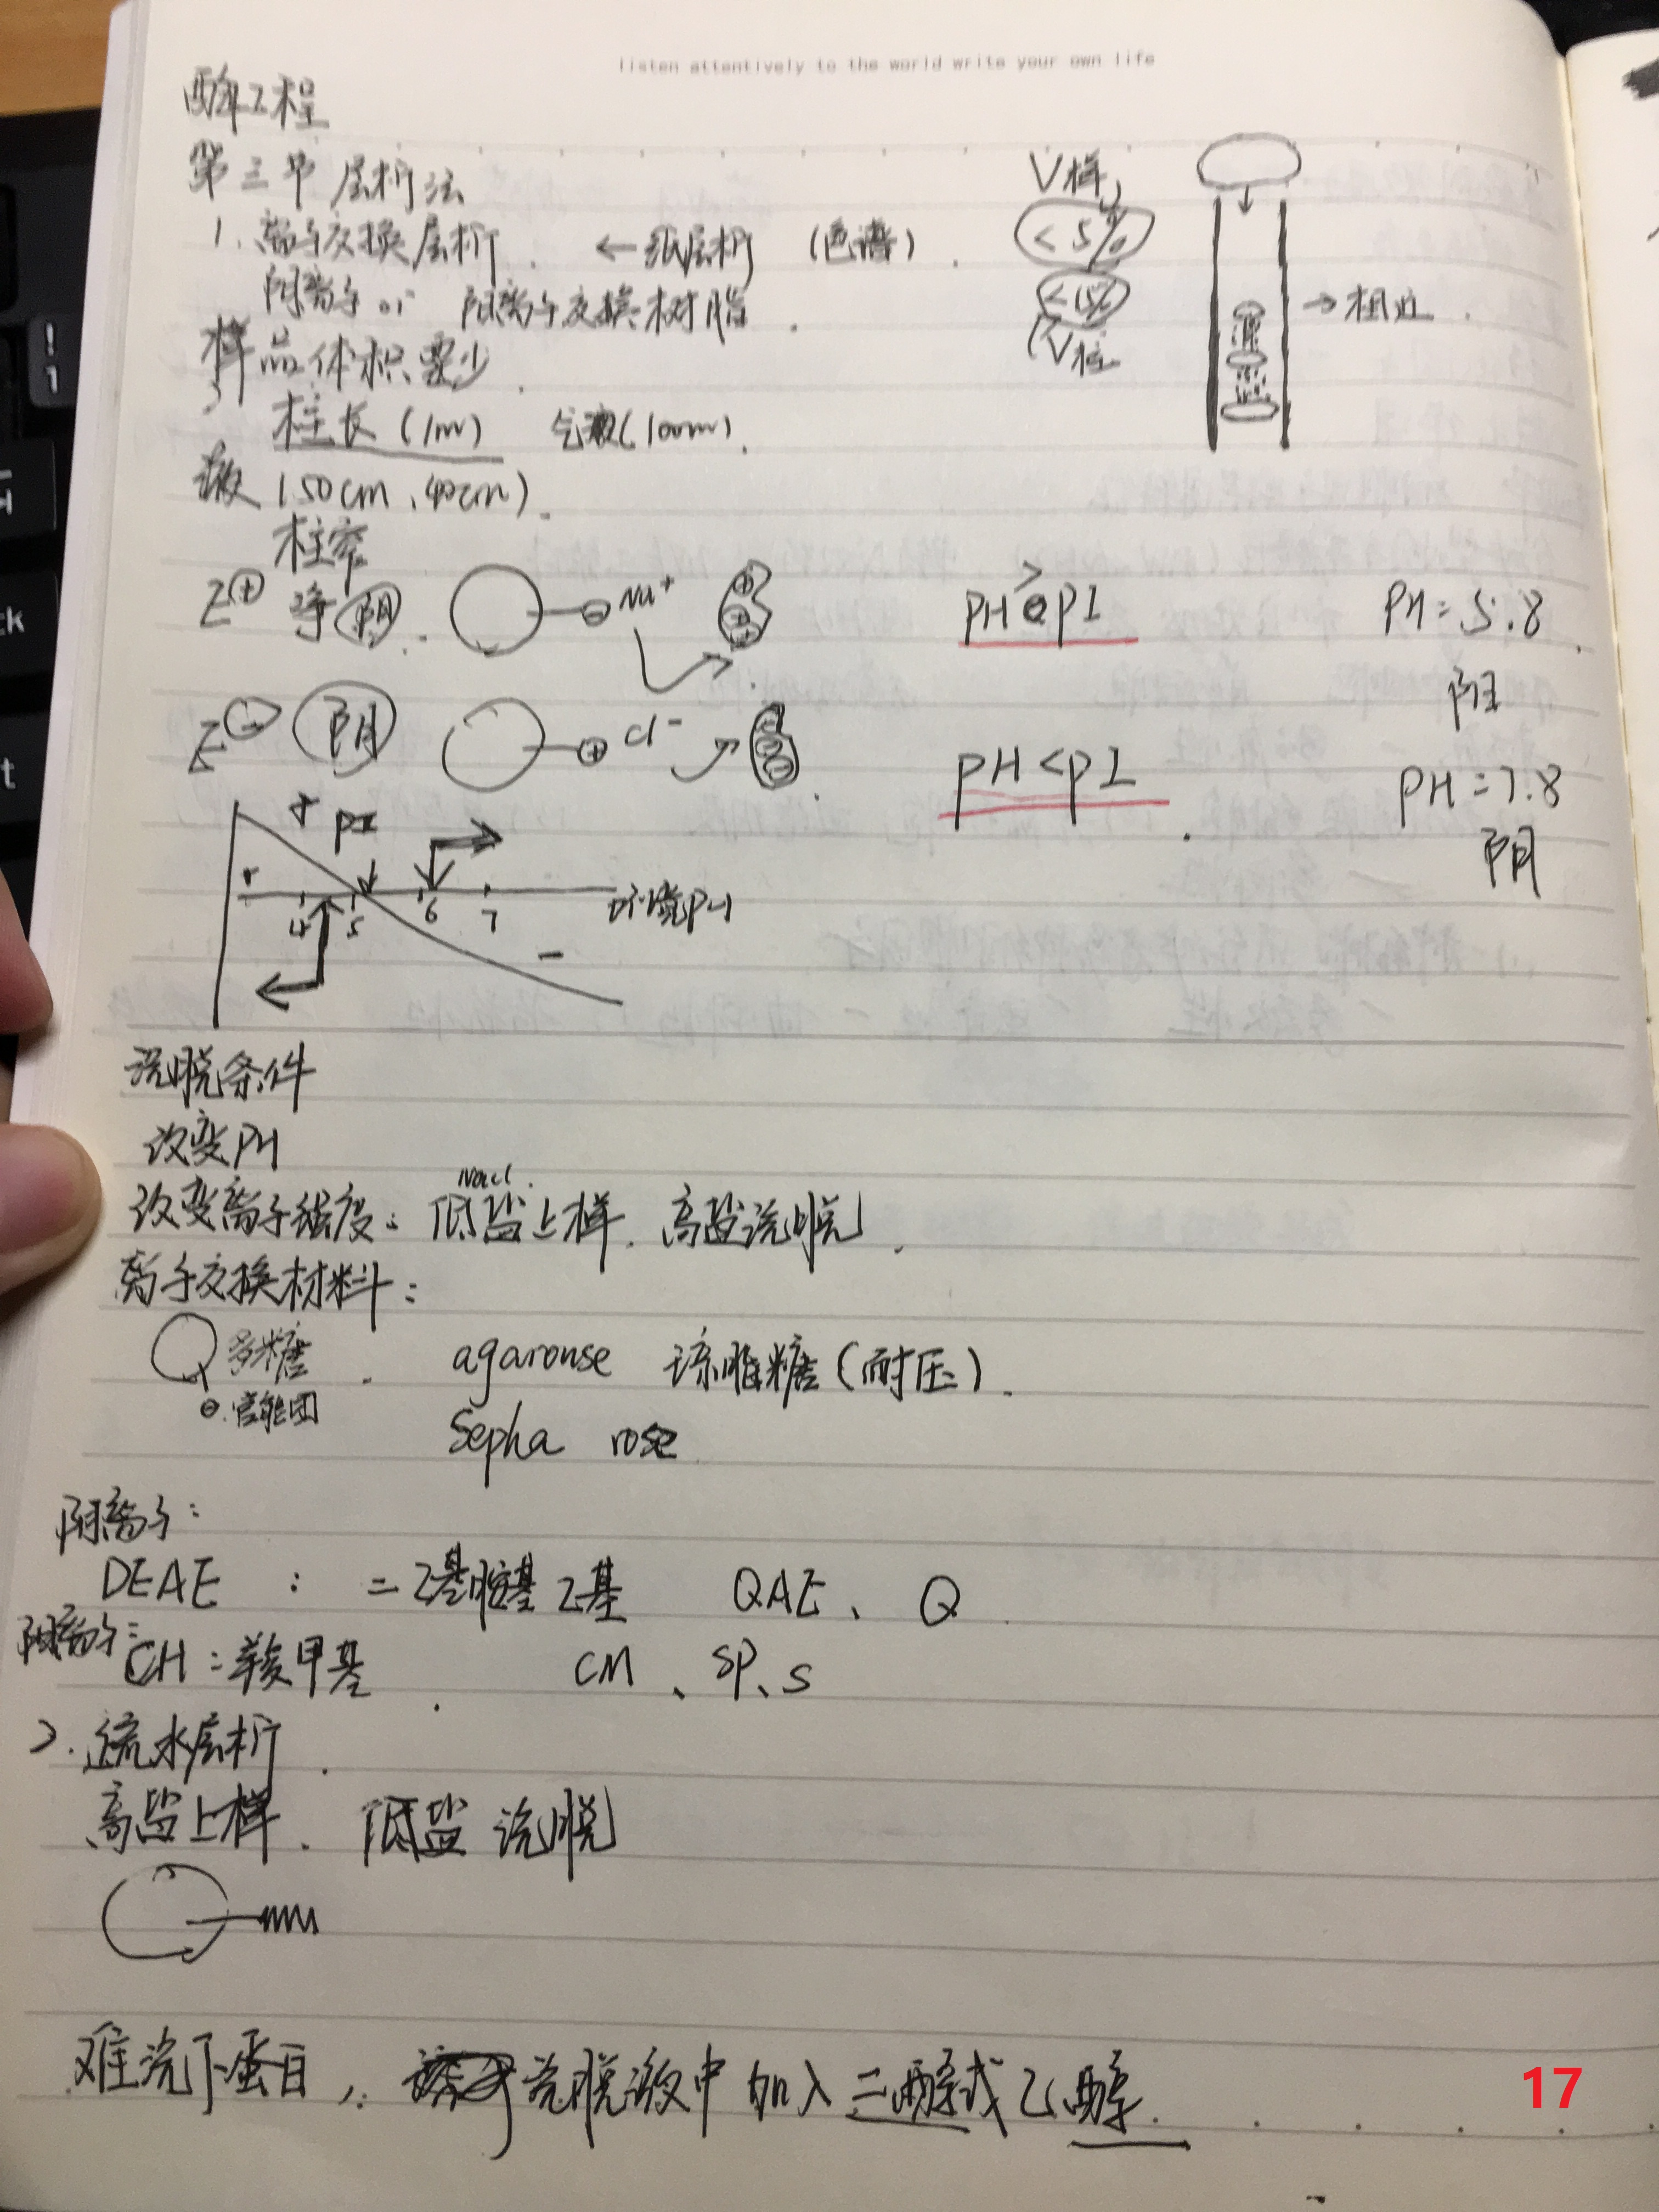 listen attentively to the world write your own life
酶工程
第三节 层析法
1. 离子交换层析. ← 纸层析 (色谱).
阳离子 or 阴离子交换树脂.
样品体积要少.
柱长 (1m) 气液 (100m).
液 (50cm, 40cm).
柱率
V样
<5%
V柱
→ 相近.
E⊕ 净
⊖ Na⁺
⊕
PH > pI
PH = 5.8
阳
E⊖ 阴
⊕ Cl⁻
⊖
pH < pI
PH = 7.8
阴
+ pI
4 5 6 7 环境PH
−
洗脱条件
改变PH
NaCl.
改变离子强度: 低盐上样. 高盐洗脱.
离子交换材料:
多糖. agaronse 琼脂糖 (耐压).
⊖.官能团
Sepha rose
阴离子:
DEAE : 二乙基胺基乙基 QAE、Q
阳离子:
CH: 羧甲基. CM、SP、S
2. 疏水层析.
高盐上样. 低盐 洗脱
难洗下蛋白, 洗脱液中加入二醇或乙醇.
17